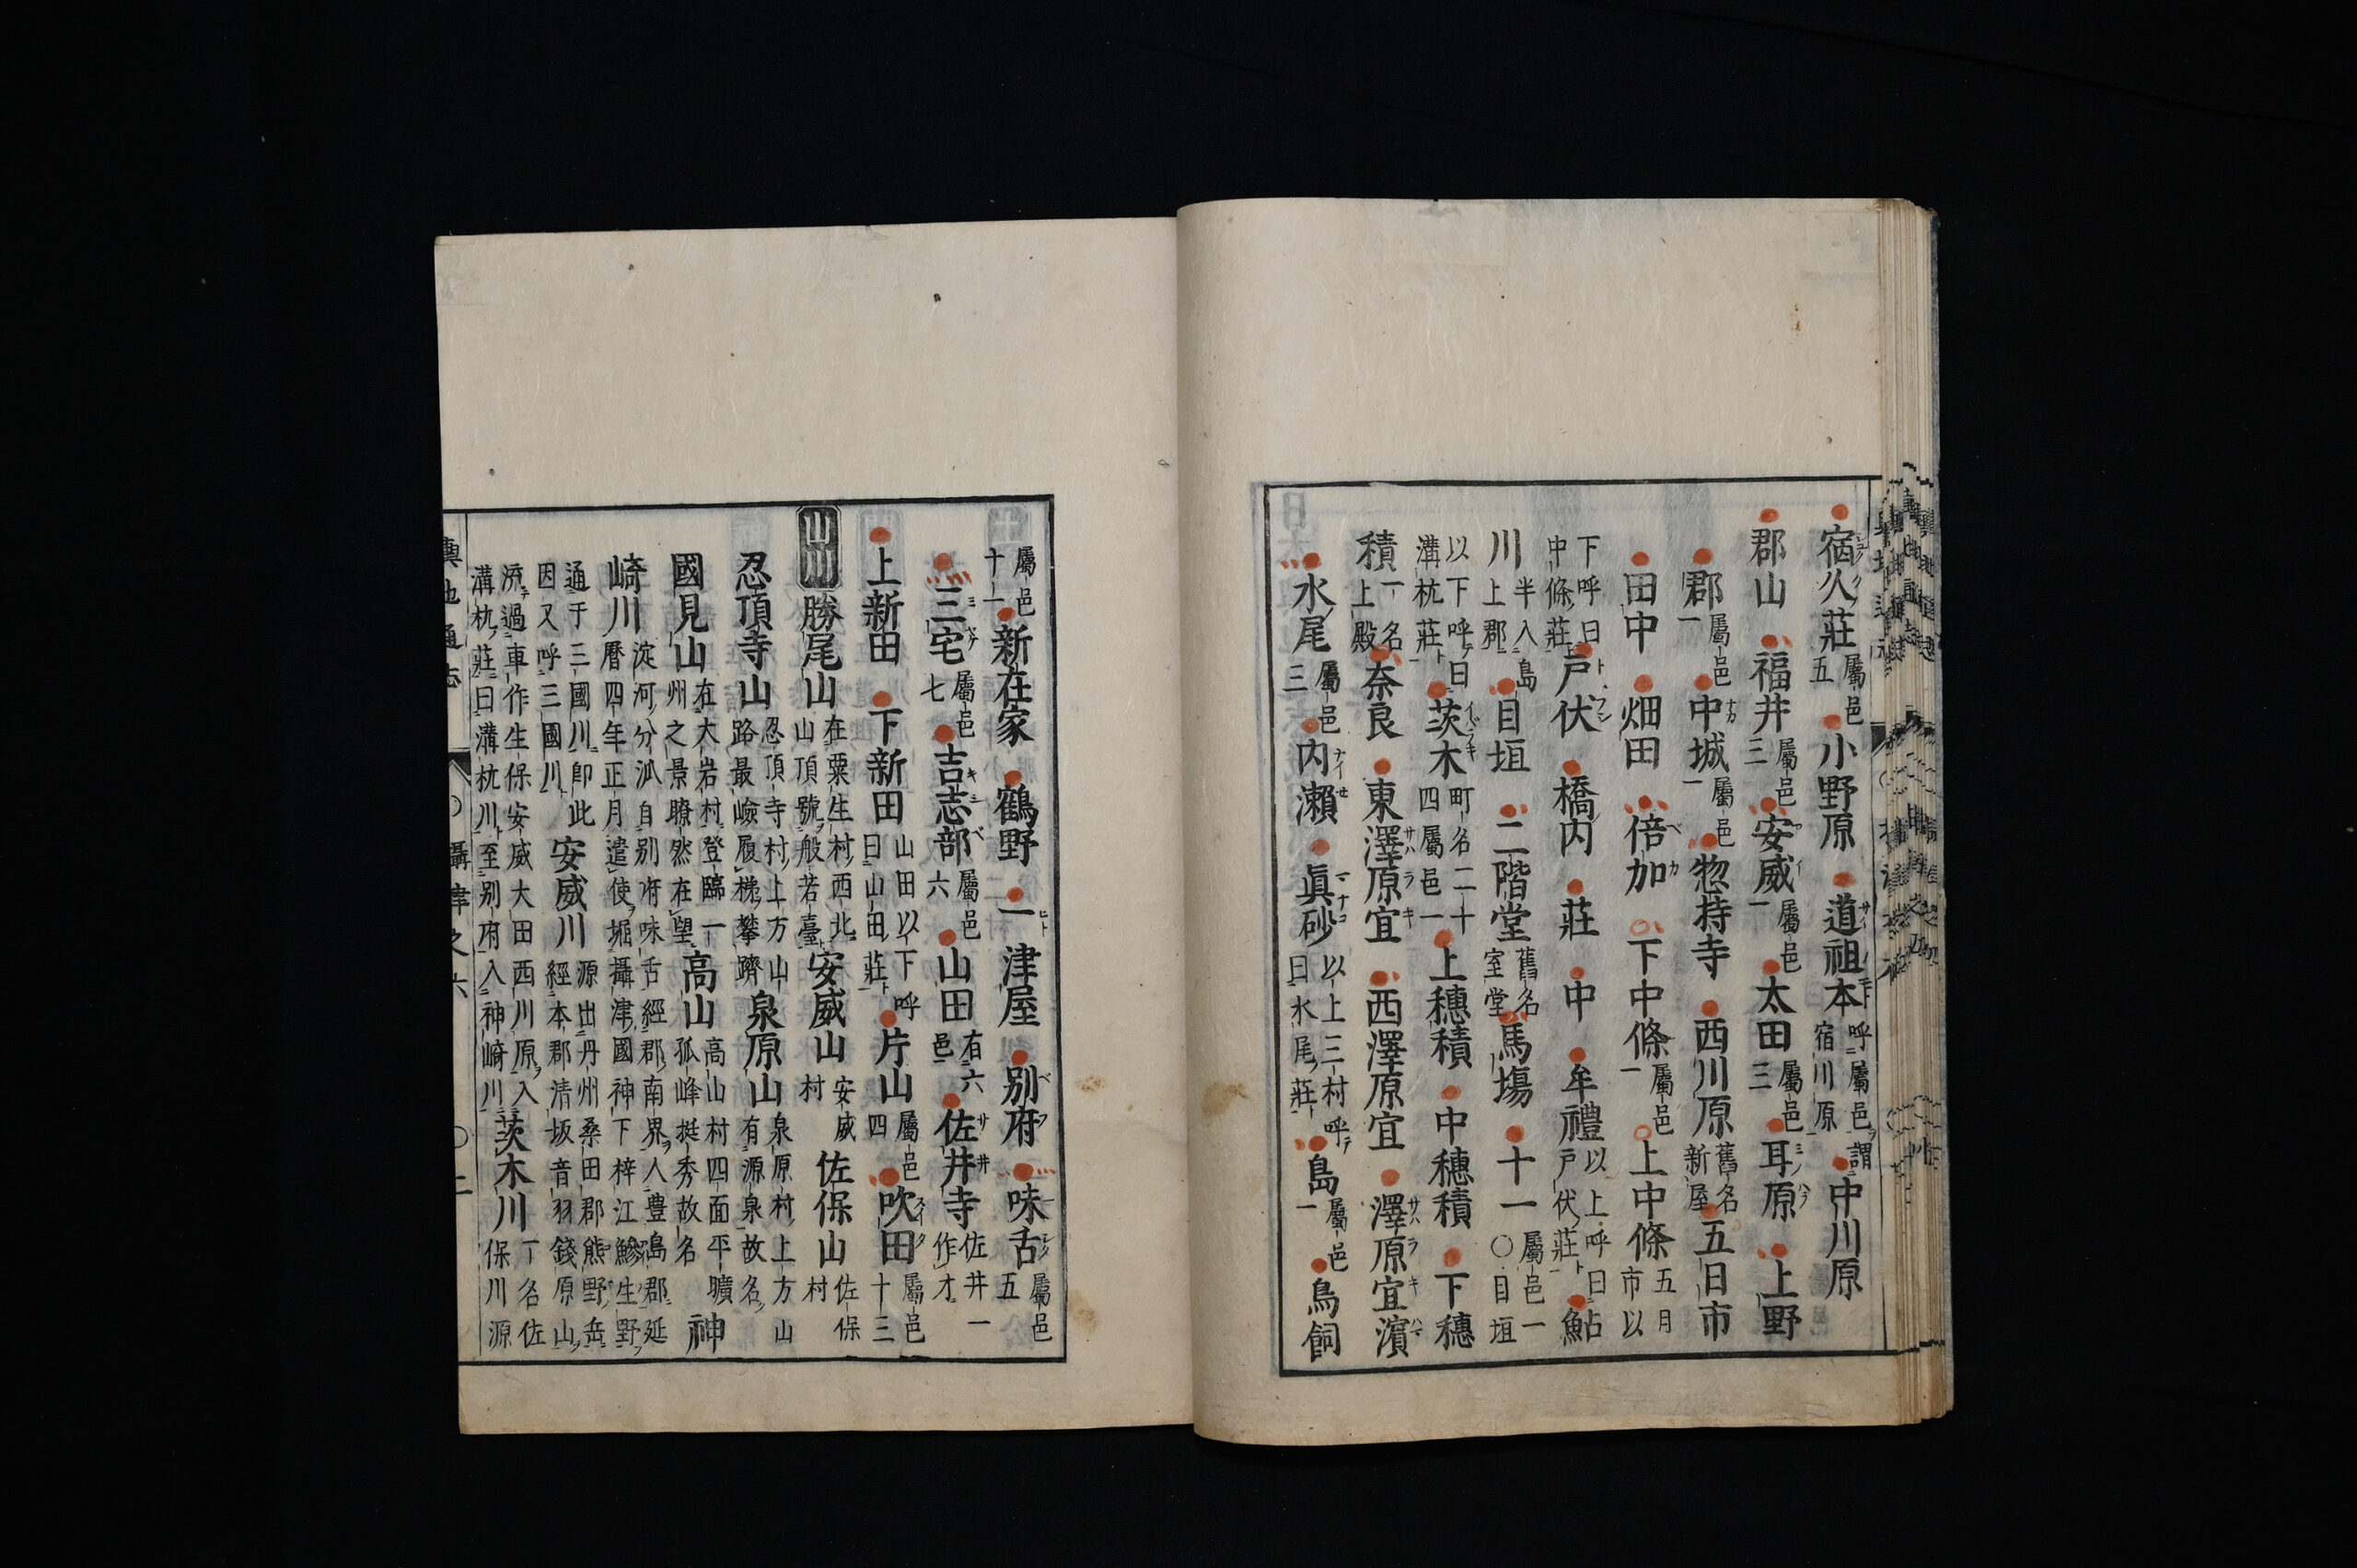 宿久莊屬邑五小野原道祖本呼屬邑謂宿川原中川原
郡山福井屬邑三安威屬邑一太田屬邑三耳原上野
郡屬邑一中城屬邑一惣持寺西川原舊名新屋五日市
田中畑田倍加下中條屬邑一上中條五月市以
下呼曰中條莊戸伏橋内莊中牟禮以上呼曰戸伏莊鮎
川半入島上郡目垣二階堂舊名室堂馬塲十一屬邑一〇目垣
以下呼曰溝杭莊茨木町名二十四屬邑一上穗積中穗積下穗
積一名上殿奈良東澤原宜西澤原宜澤原宜濱
水尾屬邑三内瀬眞砂以上三村呼曰水尾莊島屬邑一鳥飼
屬邑十一新在家鶴野一津屋别府味舌屬邑五
三宅屬邑七吉志部屬邑六山田有六邑佐井寺佐井一作才
上新田下新田山田以下呼曰山田莊片山屬邑四吹田屬邑十三
山川勝尾山在粟生村西北山頂號般若臺安威山安威村佐保山佐保村
忍頂寺山忍頂寺村上方山路最嶮履梯攀躋泉原山泉原村上方山有源泉故名
國見山在大岩村登臨一州之景瞭然在望高山高山村四面平曠孤峰挺秀故名神
崎川淀河分派自别府味舌經郡南界入豊島郡延曆四年正月遣使堀攝津國神下梓江鰺生野
通于三國川即此因又呼三國川安威川源出丹州桑田郡熊野岳經本郡清坂音羽錢原山
流過車作生保安威大田西川原入溝杭莊曰溝杭川至别府入神崎川茨木川一名佐保川源
輿地通志
攝津之六
二